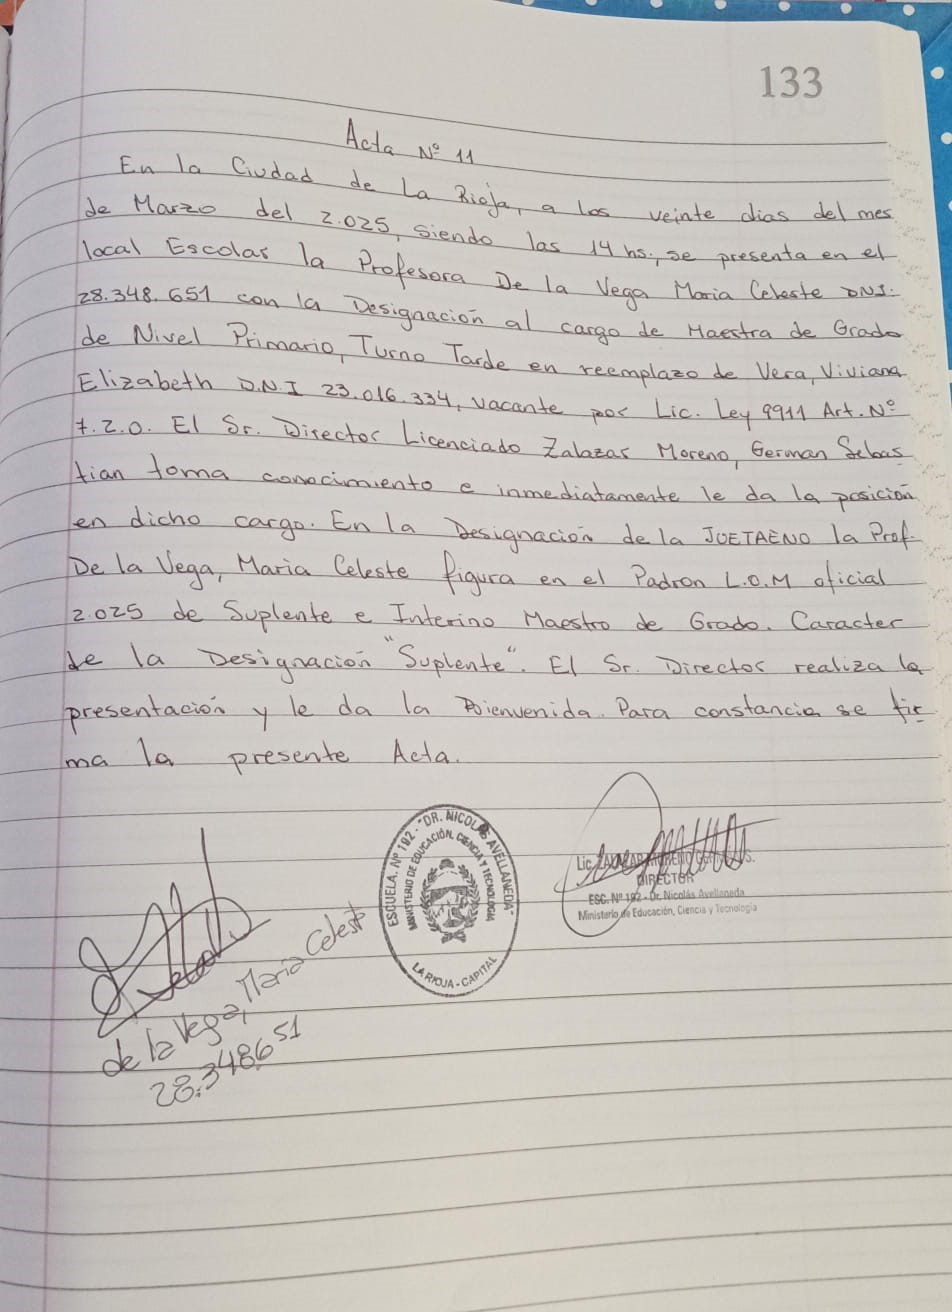 133
Acta Nº 11
En la Ciudad de La Rioja, a los veinte dias del mes
de Marzo del 2.025, siendo las 14 hs., se presenta en el
local Escolar la Profesora De la Vega Maria Celeste DNI:
28.348.651 con la Designacion al cargo de Maestra de Grado
de Nivel Primario, Turno Tarde en reemplazo de Vera, Viviana
Elizabeth D.N.I 23.016.334, vacante por Lic. Ley 9911 Art. Nº
7.2.0. El Sr. Director Licenciado Zalazar Moreno, German Sebas
tian toma conocimiento e inmediatamente le da la posicion
en dicho cargo. En la Designacion de la JUETAENO la Prof.
De la Vega, Maria Celeste figura en el Padron L.O.M oficial
2.025 de Suplente e Interino Maestro de Grado. Caracter
de la Designacion "Suplente". El Sr. Director realiza la
presentacion y le da la Bienvenida. Para constancia se fir
ma la presente Acta.
ESCUELA. Nº 192 - "DR. NICOLAS AVELLANEDA"
MINISTERIO DE EDUCACIÓN, CIENCIA Y TECNOLOGIA
LA RIOJA - CAPITAL
Lic.
DIRECTOR
ESC. Nº 192 - Dr. Nicolás Avellaneda
Ministerio de Educación, Ciencia y Tecnología
de la Vega, Maria Celeste
28.348651